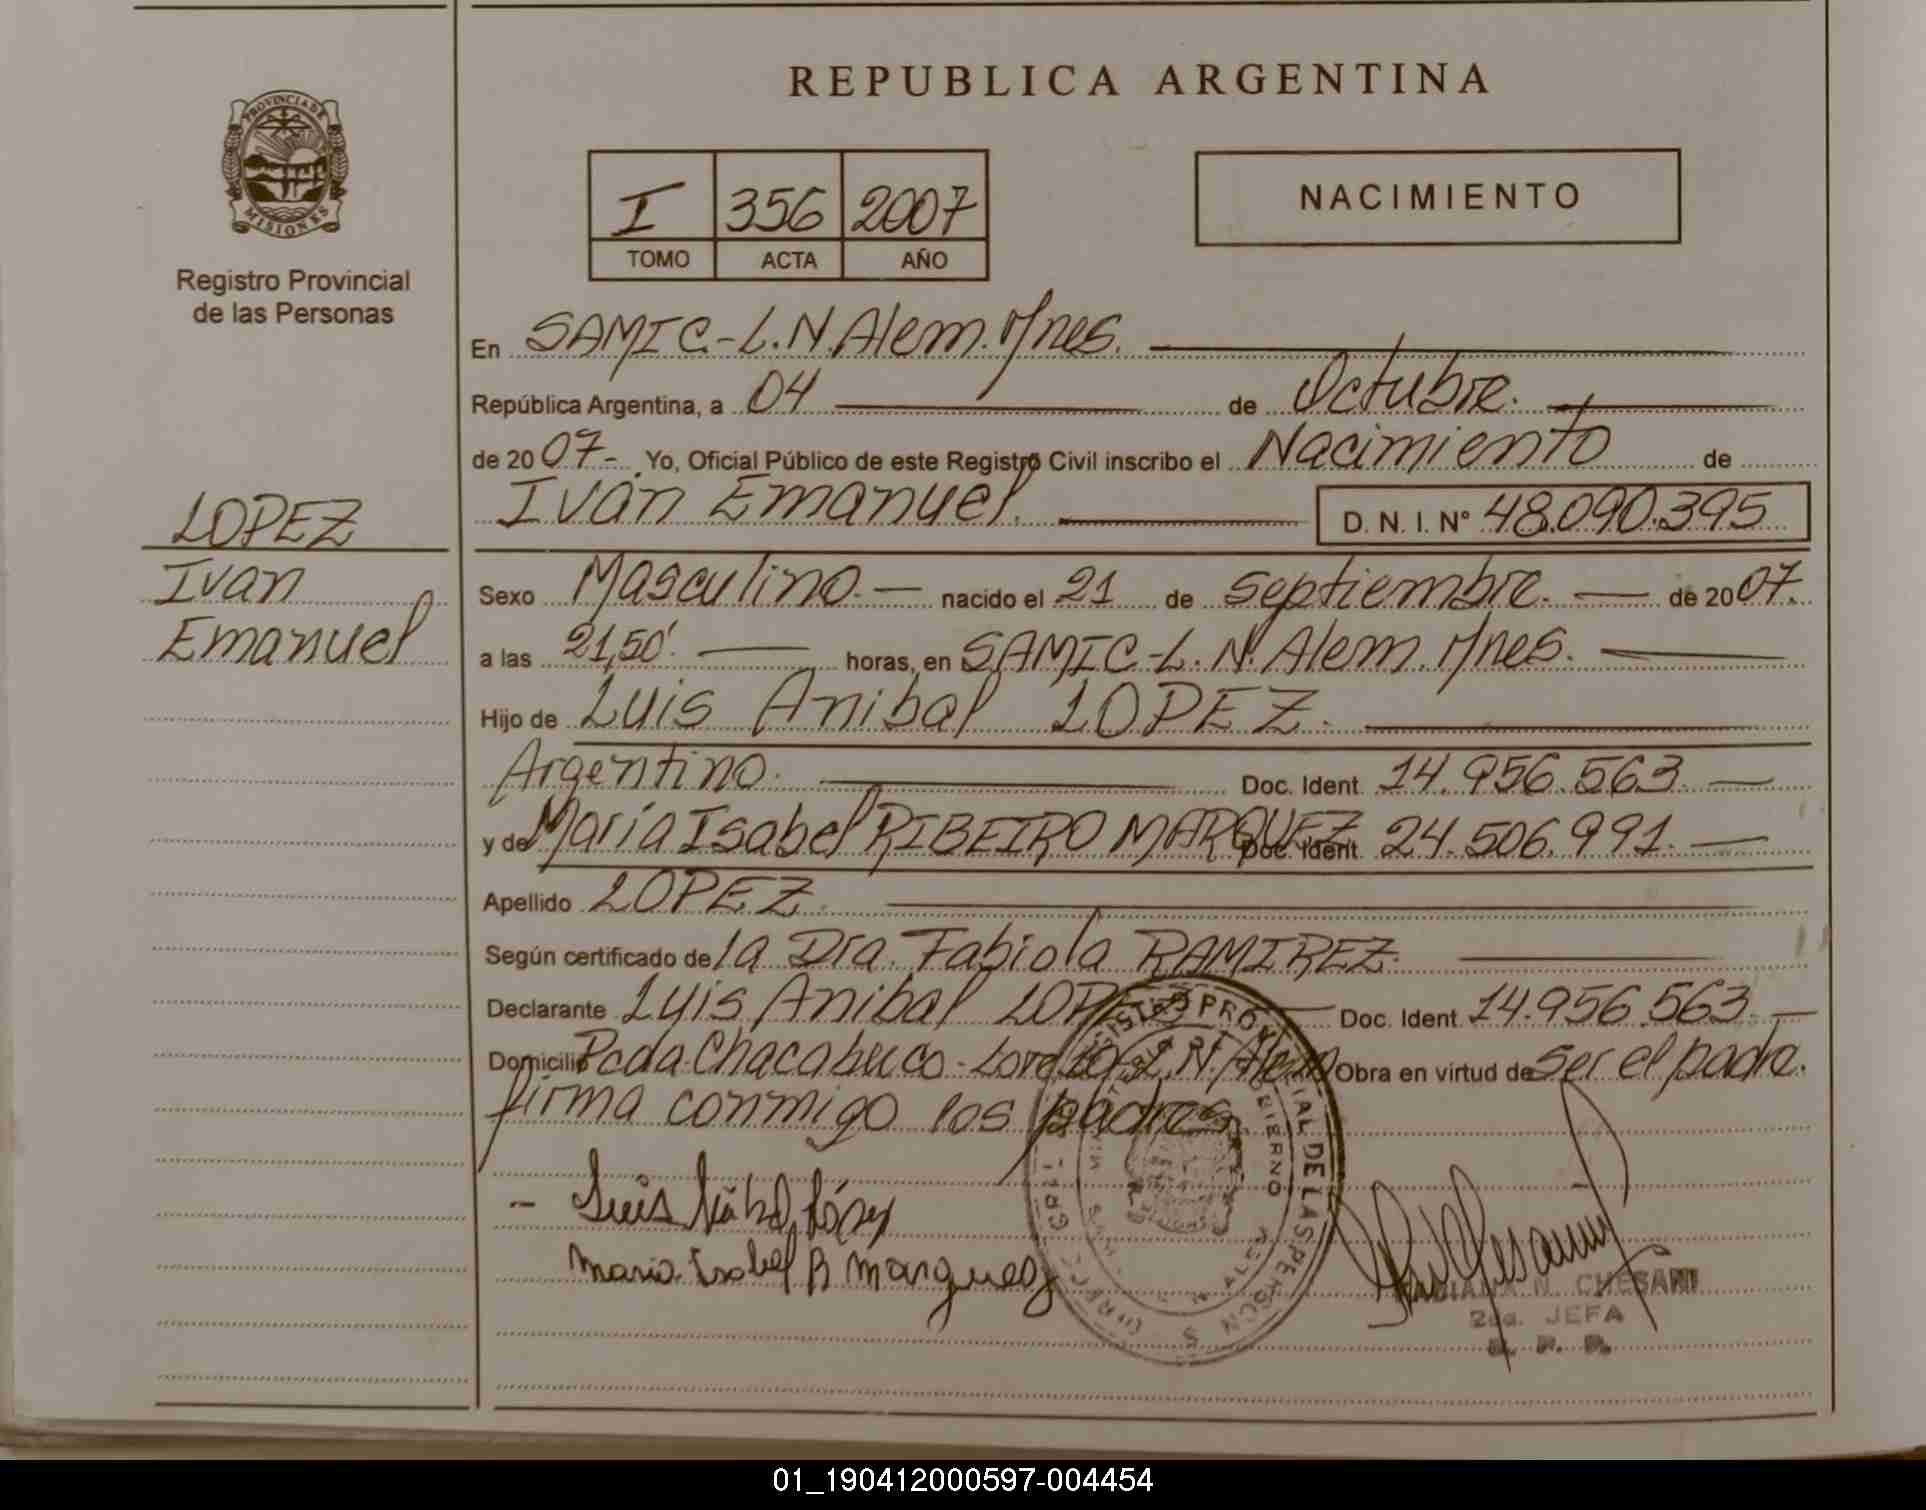 REPUBLICA ARGENTINA
PROVINCIA DE
MISIONES
Registro Provincial
de las Personas
I 356 2007
TOMO ACTA AÑO
NACIMIENTO
En SAMIC.-L.N.Alem.Mnes.
República Argentina, a 04 de Octubre.
de 2007.- Yo, Oficial Público de este Registro Civil inscribo el Nacimiento de
Iván Emanuel. D. N. I. N° 48.090.395
LOPEZ
Ivan
Emanuel
Sexo Masculino.- nacido el 21 de Septiembre. de 2007.
a las 21,50'. horas, en SAMIC-L.N.Alem.Mnes.
Hijo de Luis Anibal LOPEZ.
Argentino. Doc. Ident. 14.956.563.
y de María Isabel RIBEIRO MARQUEZ Doc. Ident. 24.506.991.
Apellido LOPEZ.
Según certificado de la Dra. Fabiola RAMIREZ.
Declarante Luis Anibal LOPEZ Doc. Ident. 14.956.563.
Domicilio Pcda.Chacabuco-Loreto-L.N.Alem Obra en virtud de ser el padre.
firma conmigo los padres
- Luis Aníbal López
Maria Isabel R Marquez
PROVINCIAL DE LAS PERSONAS
N. CHESANI
2da. JEFA
01_190412000597-004454